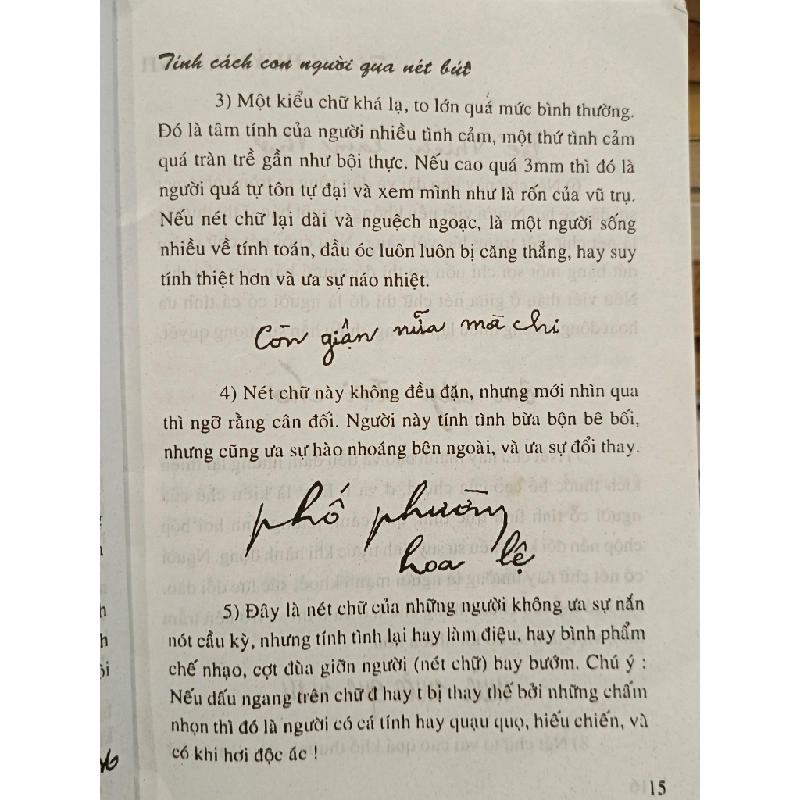 Tính cách con người qua nét bút
3) Một kiểu chữ khá lạ, to lớn quá mức bình thường.
Đó là tâm tính của người nhiều tình cảm, một thứ tình cảm
quá tràn trề gần như bội thực. Nếu cao quá 3mm thì đó là
người quá tự tôn tự đại và xem mình như là rốn của vũ trụ.
Nếu nét chữ lại dài và nguệch ngoạc, là một người sống
nhiều về tính toán, đầu óc luôn luôn bị căng thẳng, hay suy
tính thiệt hơn và ưa sự náo nhiệt.
Còn giận nữa mà chi
4) Nét chữ này không đều đặn, nhưng mới nhìn qua
thì ngỡ rằng cân đối. Người này tính tình bừa bộn bê bối,
nhưng cũng ưa sự hào nhoáng bên ngoài, và ưa sự đổi thay.
phố phường
hoa lệ
5) Đây là nét chữ của những người không ưa sự nắn
nót cầu kỳ, nhưng tính tình lại hay làm điệu, hay bình phẩm
chế nhạo, cợt đùa giỡn người (nét chữ) bay bướm. Chú ý :
Nếu dấu ngang trên chữ đ hay t bị thay thế bởi những chấm
nhọn thì đó là người có cá tính hay quạu quọ, hiếu chiến, và
có khi hơi độc ác !
15